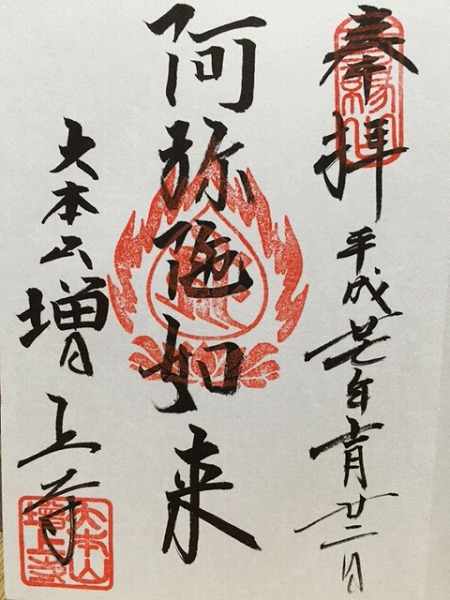 奉拝 平成廿七年 月廿二日
阿弥陀如来
大本山増上寺
大本山
増上寺